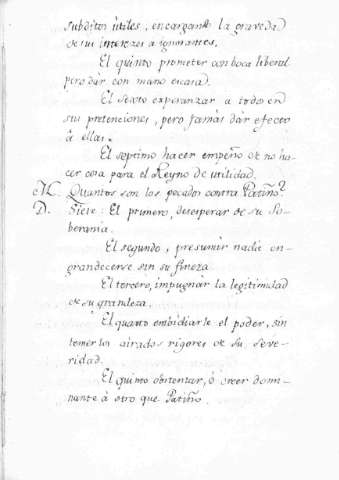 subditos útiles, encargando la graveda^d
de sus interezes a ignorantes.
El quinto prometer con boca liberal
pero dár con mano escasa.
El sexto esperanzar a todos en
sus pretenciones, pero jamás dár efecto
á ellas.
El septimo hacer empeño de no ha-
cer cosa para el Reyno de utilidad.
M. Quantos son los pecados contra Patiño?
D. Siete: El primero, desesperar de su So-
berania.
El segundo, presumir nadie en-
grandecerse sin su fineza.
El tercero, impugnar la legitimidad
de su grandeza.
El quarto embidiarle el poder, sin
temer los airados rigores de su seve-
ridad.
El quinto obstentar, ó creer domi-
nante á otro que Patiño.